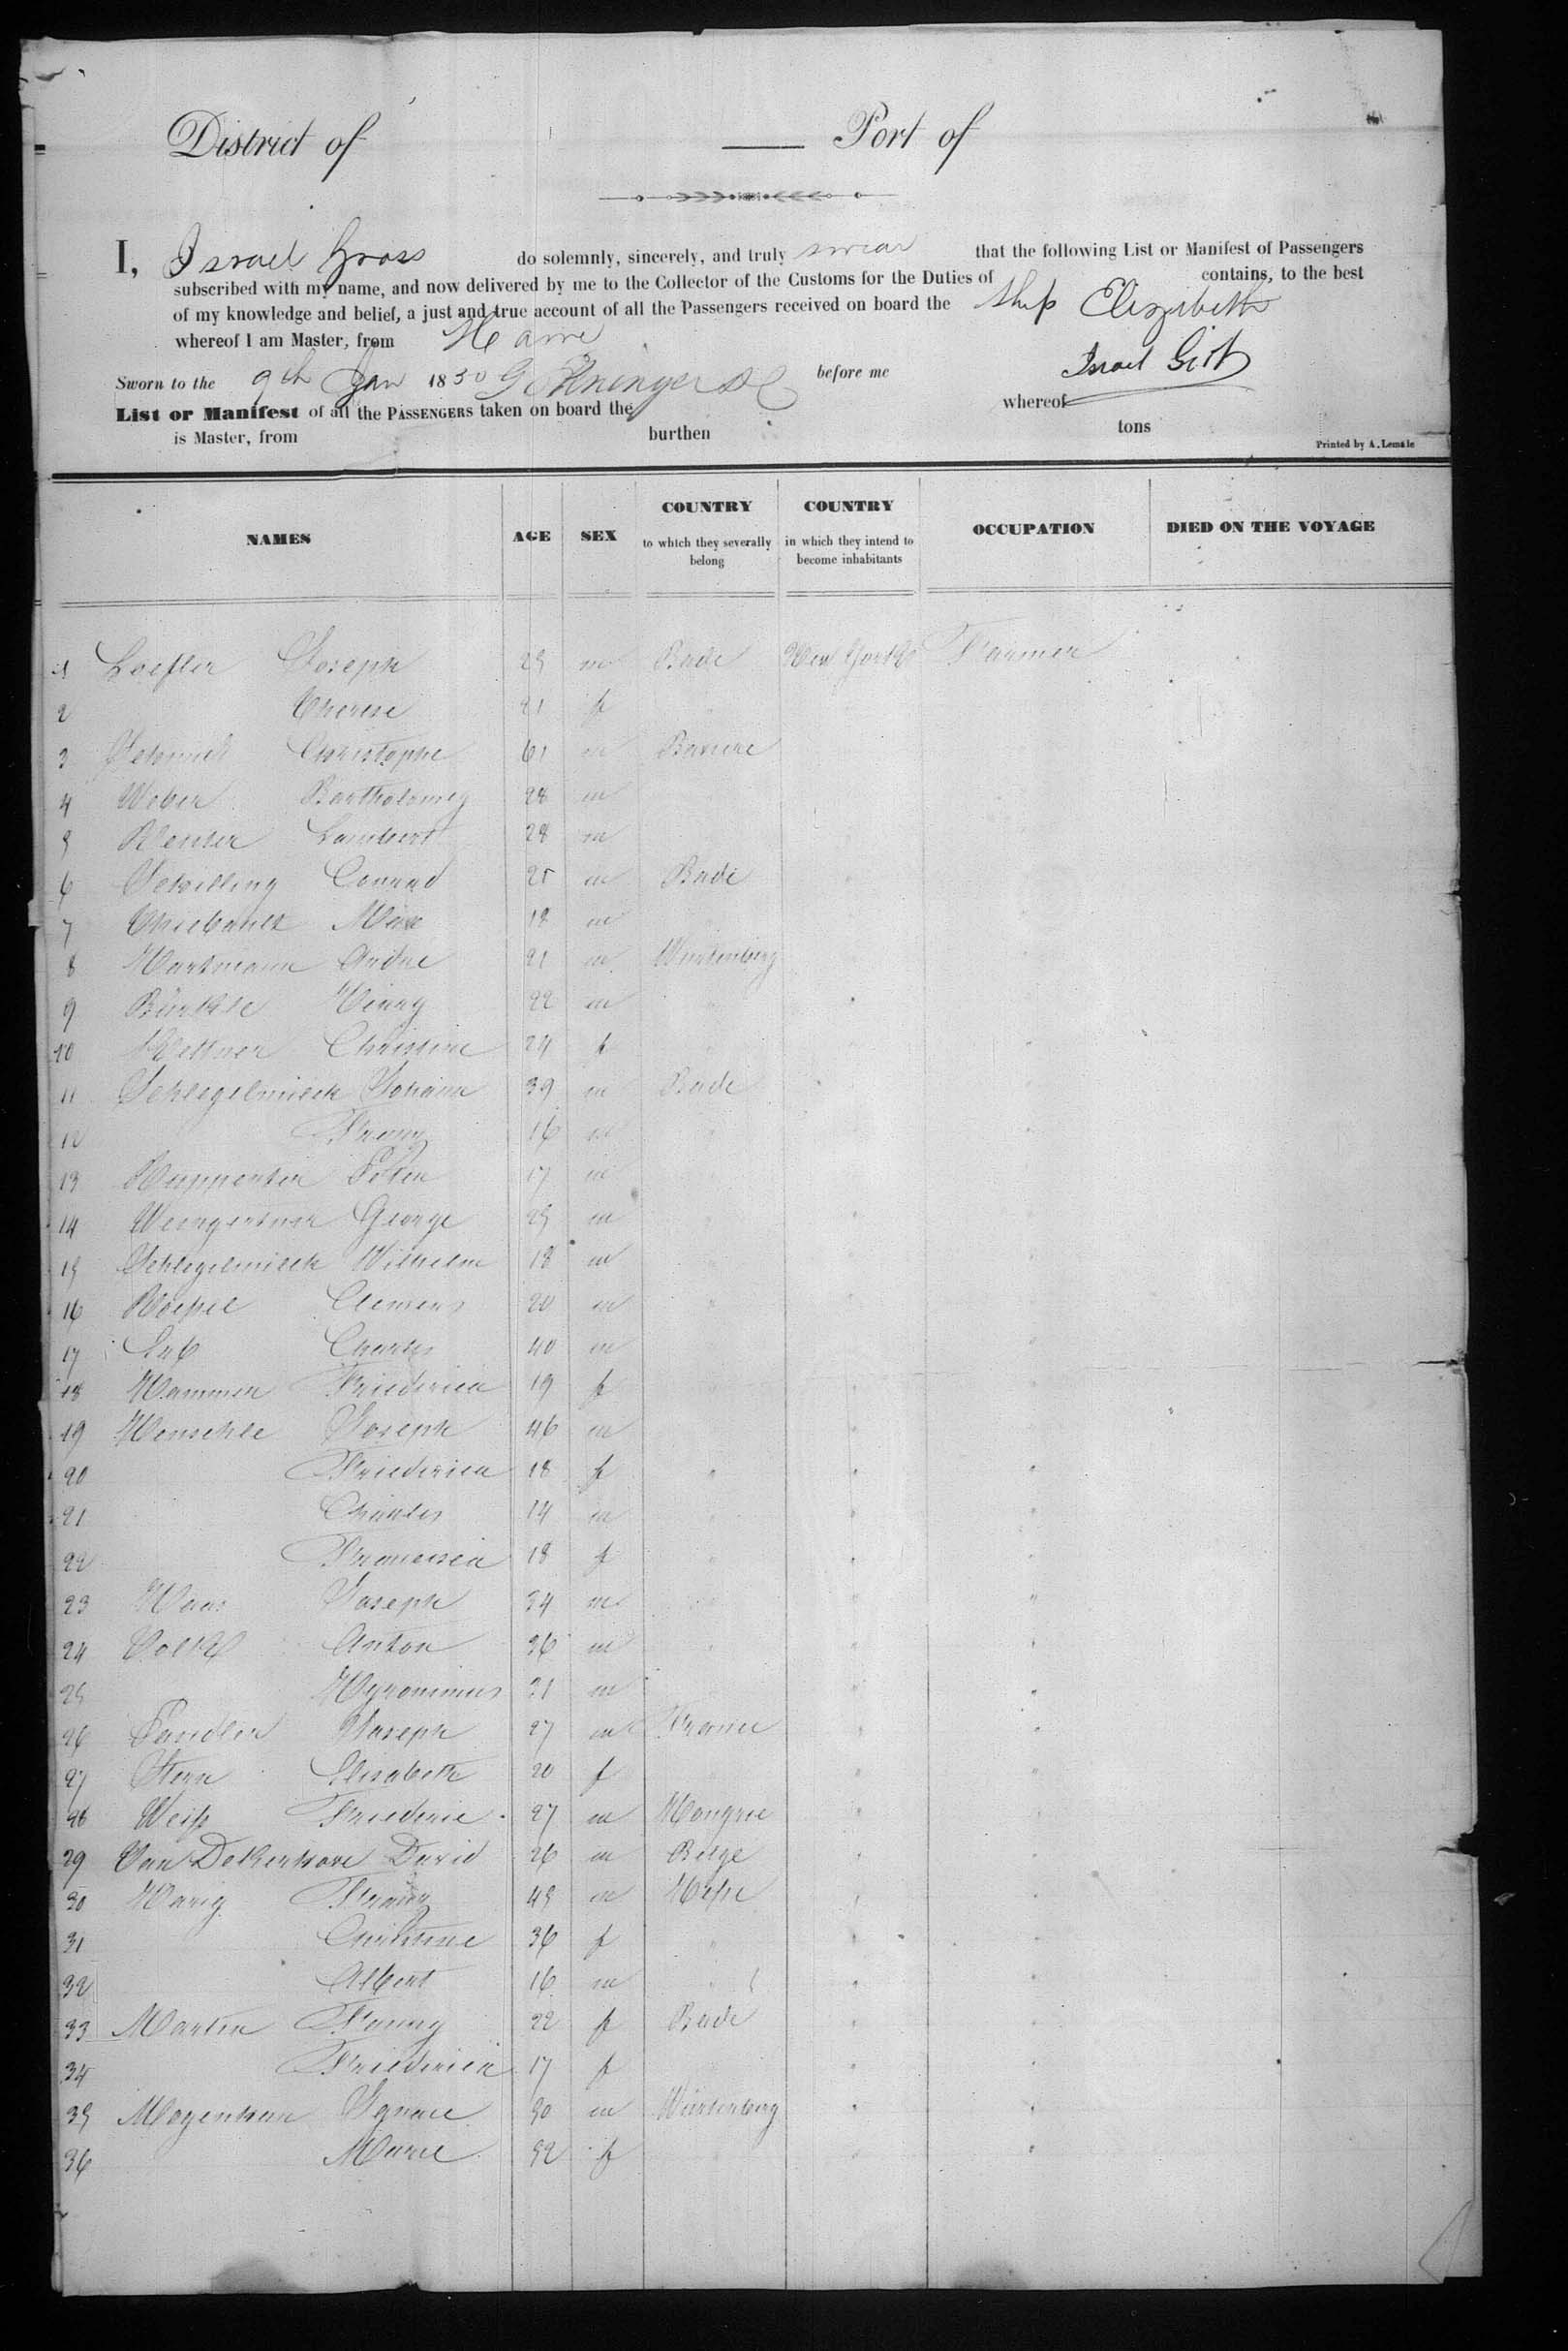 District of Port of
I, Israel Gross do solemnly, sincerely, and truly swear that the following List or Manifest of Passengers
subscribed with my name, and now delivered by me to the Collector of the Customs for the Duties of contains, to the best
of my knowledge and belief, a just and true account of all the Passengers received on board the Ship Elizabeth
whereof I am Master, from Havre
Sworn to the 9th Jan 1850 before me Israel
List or Manifest of all the PASSENGERS taken on board the whereof
is Master, from burthen tons
Printed by A. Lemale
NAMES AGE SEX COUNTRY to which they severally belong COUNTRY in which they intend to become inhabitants OCCUPATION DIED ON THE VOYAGE
1 Loefler Joseph 25 m Bade New York Farmer
2 Therese 21 f
3 Christophe 61 m Baviere
4 Weber Bartholomey 28 m
5 Lambert 28 m
6 Schilling Conrad 25 m Bade
7 Thiebault Max 18 m
8 Hartmann Andre 21 m Wurtemberg
9 Bürkle Henry 22 m
10 Christine 24 f
11 Schlegelmilch Johann 39 m Bade
12 Franz 16 m
13 17 m
14 Weingertner George 25 m
15 Schlegelmilch Wilhelm 18 m
16 Clemens 20 m
17 Charles 40 m
18 Hammer Friederica 19 f
19 Henschle Joseph 46 m
20 Friederica 18 f
21 Charles 14 m
22 Francisca 18 f
23 Haas Joseph 34 m
24 Volk Anton 36 m
25 Hyronimus 31 m
26 Joseph 27 m France
27 Stern Elisabeth 20 f
28 Weiss Friederic 27 m Hongrie
29 Van Dekerkove David 26 m Belge
30 Harig Franz 45 m Hesse
31 Christine 36 f
32 Albert 16 m
33 Martin Fanny 22 f Bade
34 Friederica 17 f
35 Ignace 50 m Wurtemberg
36 Marie 52 f